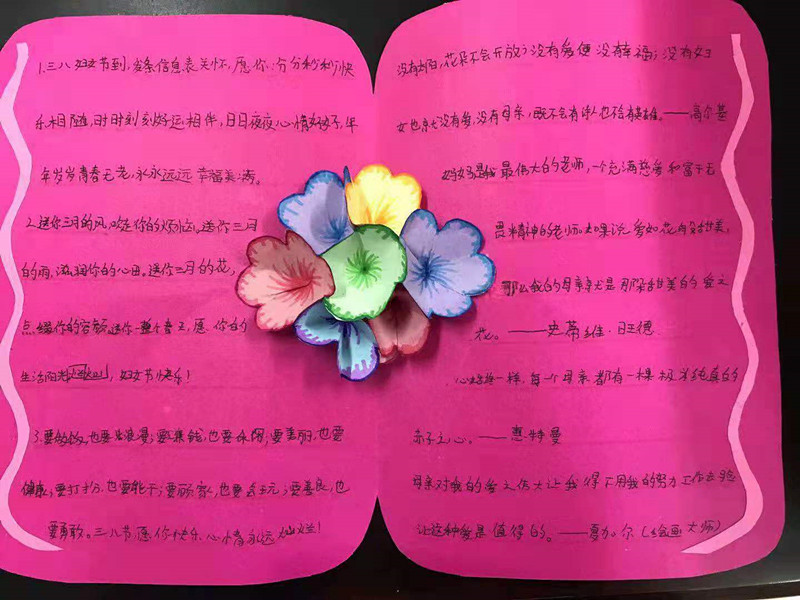 1.三八妇女节到,发条信息表关怀,愿你:分分秒秒快
乐相随,时时刻刻好运相伴,日日夜夜心情好,年
年岁岁青春无老,永永远远幸福美满。
2.送你三月的风,吹走你的烦恼。送你三月
的雨,滋润你的心田。送你三月的花,
点缀你的容颜。送你一整个春天,愿你的
生活阳光灿烂,妇女节快乐!
3.要放松,也要浪漫;要赚钱,也要休闲;要美丽,也要
健康;要打扮,也要能干;要顾家,也要;要善良,也
要勇敢。三八节愿你快乐,心情永远灿烂!
没有太阳,花朵不会开放;没有爱便没有幸福;没有妇
女也就没有爱,没有母亲,既不会有诗人也不会有英雄。——高尔基
妈妈是我最伟大的老师,一个充满慈爱和富于无
畏精神的老师。如果说爱如花般甜美,
那么我的母亲就是那朵甜美的爱之
花。——史蒂维·旺德
一样,每个母亲都有一棵极为纯真的
赤子之心。——惠特曼
母亲对我的爱之伟大让我得不用我的努力工作去验
证这种爱是值得的。——夏加尔(绘画大师)